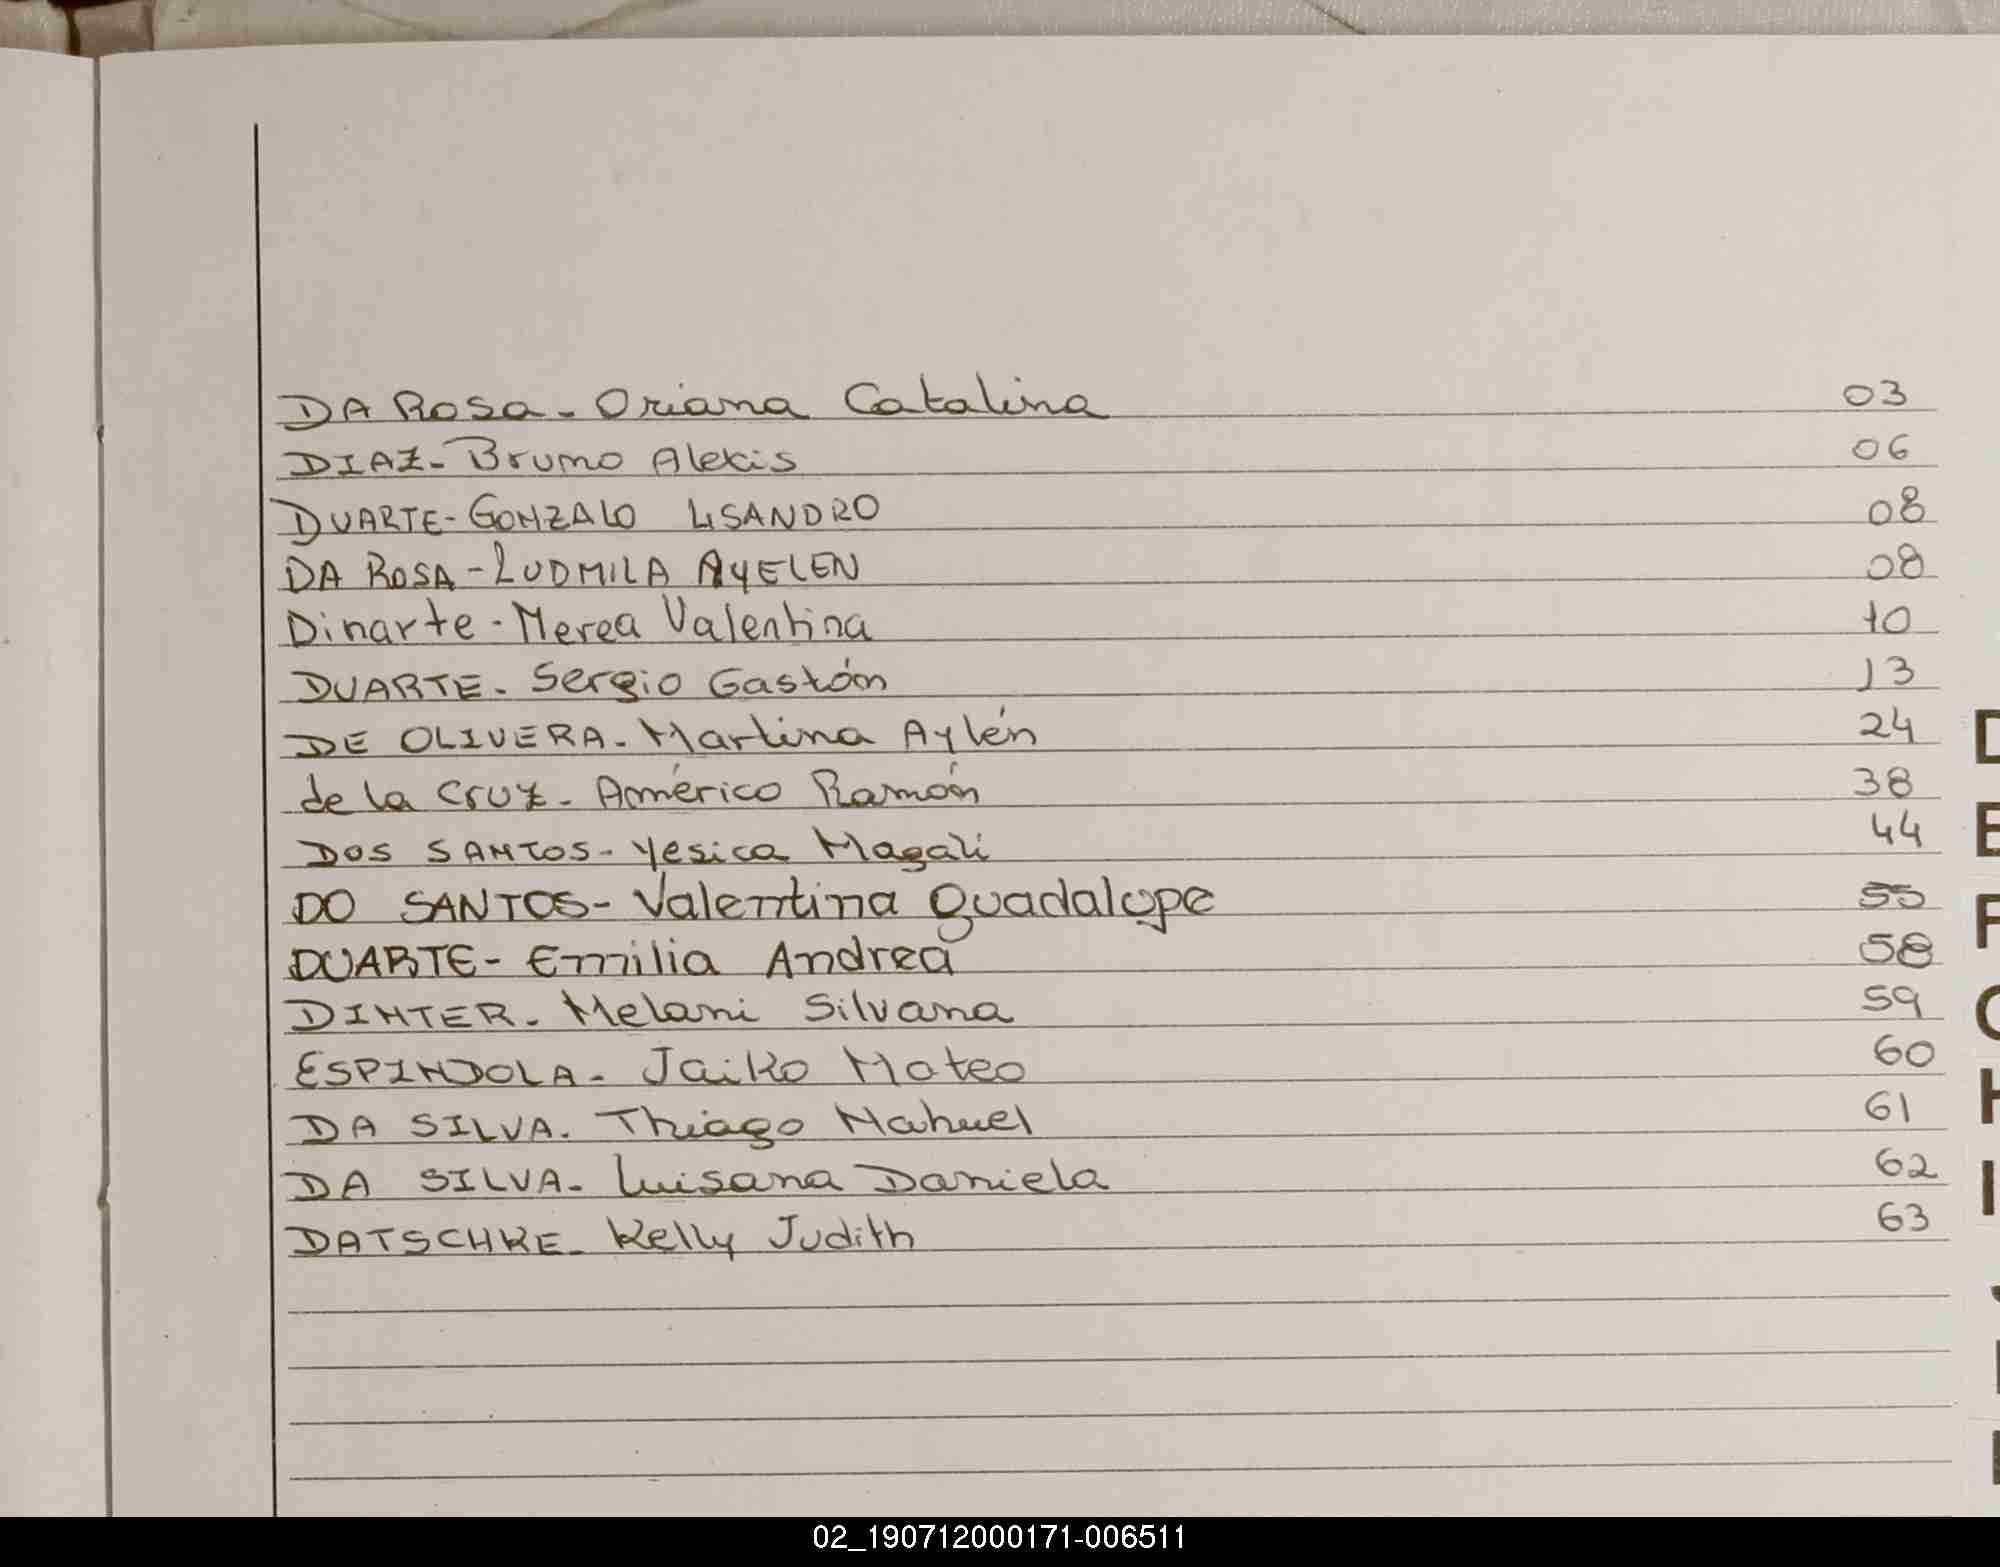 DA ROSA - Oriana Catalina 03
DIAZ - Bruno Alexis 06
DUARTE - GONZALO LISANDRO 08
DA ROSA - LUDMILA AYELEN 08
Dinarte - Nerea Valentina 10
DUARTE - Sergio Gastón 13
DE OLIVERA - Martina Aylén 24
de la CRUZ - Américo Ramón 38
DOS SANTOS - Yesica Magali 44
DO SANTOS - Valentina Guadalupe 55
DUARTE - Emilia Andrea 58
DINTER - Melani Silvana 59
ESPINDOLA - Jaiko Mateo 60
DA SILVA - Thiago Nahuel 61
DA SILVA - Luisana Daniela 62
DATSCHKE - Kelly Judith 63
D
E
F
G
H
I
J
02_190712000171-006511